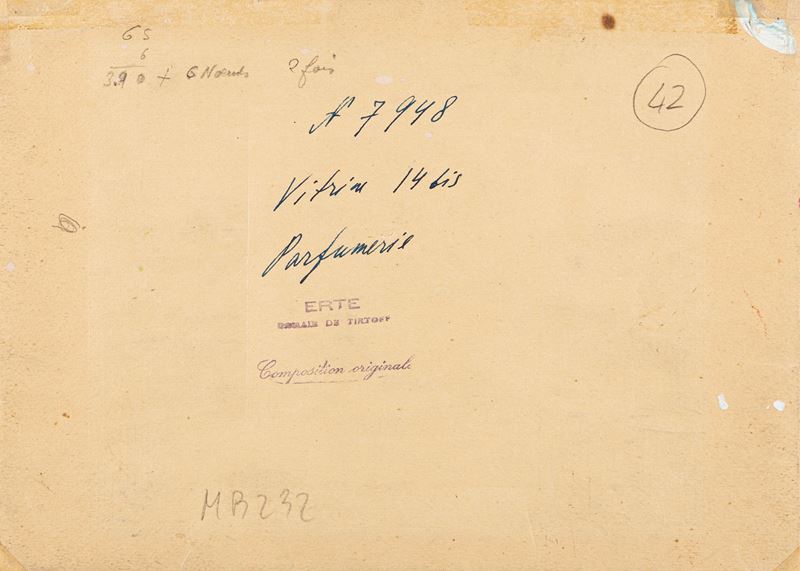 65
6
390 + 6 Nœuds 2 fois
42
N 7948
Vitrine 14 bis
Parfumerie
6
ERTE
ROMAIN DE TIRTOFF
Composition originale
MB232